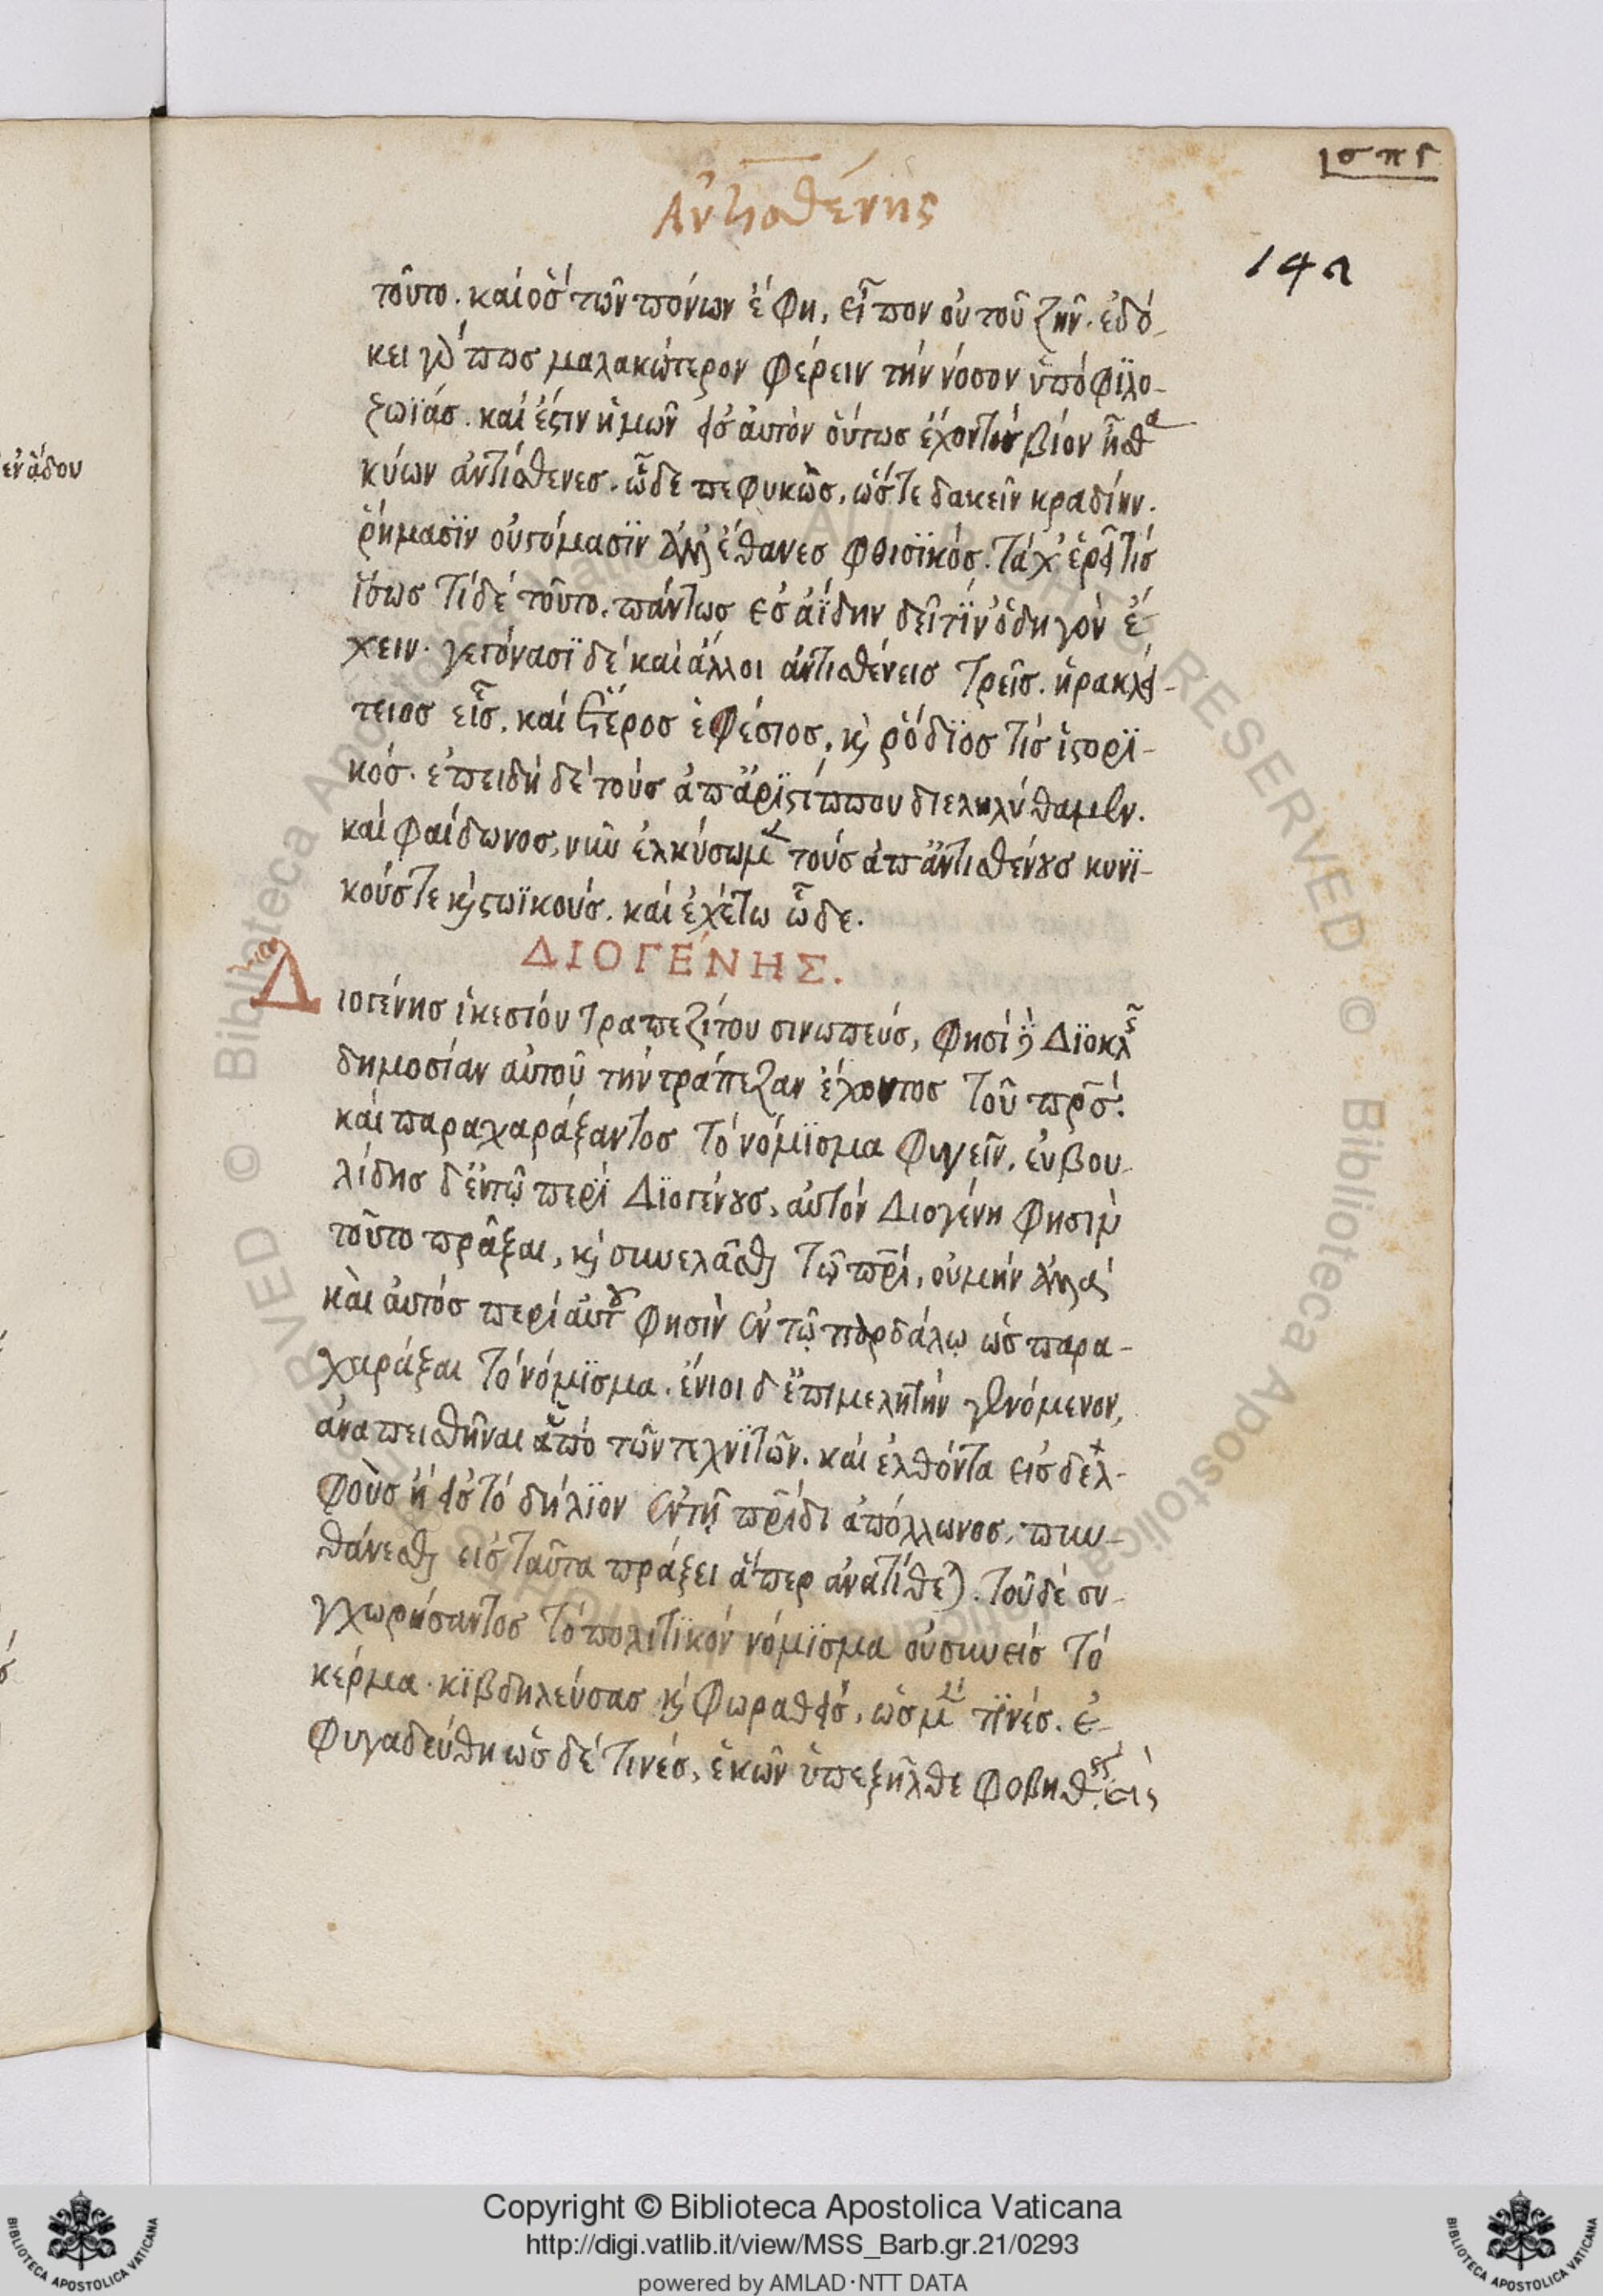 σπγ
Ἀντισθένης
142
τοῦτο. καὶ ὃς τῶν πόνων ἔφη, εἶπον οὐ τοῦ ζῆν. ἐδό-
κει γάρ πως μαλακώτερον φέρειν τὴν νόσον ὑπὸ φιλο-
ζωΐας. καὶ ἔστιν ἡμῶν εἰς αὐτὸν οὕτως ἔχον τὸν βίον ἦσθα
κύων ἀντίσθενες. ὧδε πεφυκὼς, ὥστε δακεῖν κραδίην.
ῥήμασϊν οὐ στόμασϊν ἀλλ' ἔθανες φθισϊκός. τάχ' ἐρεῖ τίς
ἴσως τί δὲ τοῦτο. πάντως ἐς ἀΐδην δεῖ τϊν' ὁδηγὸν ἔ-
χειν. γεγόνασϊ δὲ καὶ ἄλλοι ἀντισθένεις τρεῖς. ἡρακλεί-
τειος εἷς. καὶ ἕτερος ἐφέσιος, καὶ ῥόδϊος τίς ἱστορϊ-
κός. ἐπειδὴ δὲ τοὺς ἀπ' ἀρϊστίππου διεληλύθαμεν.
καὶ φαίδωνος, νῦν ἑλκύσωμεν τοὺς ἀπ' ἀντισθένους κυνϊ-
κούς τε καὶ στωϊκούς. καὶ ἐχέτω ὧδε.
ΔΙΟΓΈΝΗΣ.
Διογένης ἱκεσίου τραπεζίτου σινωπεύς, φησὶ δὲ Διοκλῆς
δημοσίαν αὐτοῦ τὴν τράπεζαν ἔχοντος τοῦ πρς.
καὶ παραχαράξαντος τὸ νόμϊσμα φυγεῖν, εὐβου-
λίδης δ' ἐν τῷ περὶ Διογένους, αὐτὸν Διογένη φησὶν
τοῦτο πρᾶξαι, καὶ συνελᾶσθαι τῷ πρι, οὐ μὴν ἀλλὰ
καὶ αὐτὸς περὶ αὐτοῦ φησὶν ἐν τῷ πορδάλῳ ὡς παρα-
χαράξαι τὸ νόμϊσμα. ἔνιοι δ' ἐπιμελητὴν γενόμενον,
ἀναπεισθῆναι ὑπὸ τῶν τεχνϊτῶν. καὶ ἐλθόντα εἰς δελ-
φοὺς ἢ εἰς τὸ δήλϊον ἐν τῇ πρίδι ἀπόλλωνος. πυν-
θάνεσθαι εἰς ταῦτα πράξει ἅπερ ἀνατίθεται. τοῦ δὲ συ-
γχωρήσαντος τὸ πολιτϊκὸν νόμϊσμα οὐ συνεὶς τὸ
κέρμα. κϊβδηλεύσας καὶ φωραθεὶς, ὡς μέν τϊνές. ἐ-
φυγαδεύθη ὡς δέ τινές, ἑκὼν ὑπεξῆλθε φοβηθείς
ἐν ᾅδου
Copyright © Biblioteca Apostolica Vaticana
http://digi.vatlib.it/view/MSS_Barb.gr.21/0293
powered by AMLAD·NTT DATA
BIBLIOTECA APOSTOLICA VATICANA
BIBLIOTECA APOSTOLICA VATICANA